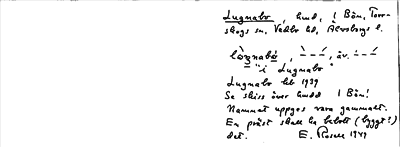 Lugnabo, hmd, i Bön, Torr-
skogs sn, Vedbo hd, Älvsborgs l.
"i Lugnabo"
Lugnabo lht 1939
Se skiss över hmdd i Bön!
Namnet uppges vara gammalt.
En präst skall ha bebott (byggt?)
det. E. Rosell 1949